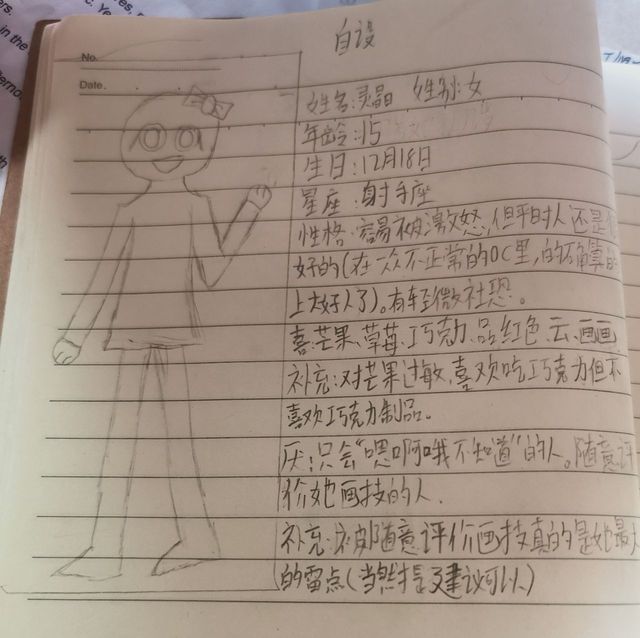 自设
No.
Date.
姓名:灵晶 姓别:女
年龄:15
生日:12月18日
星座:射手座
性格:容易被激怒,但平时人还是
好的(在一众不正常的OC里,的确算的
上太好人了)。有轻微社恐。
喜:芒果、草莓、巧克力、品红色、云、画画
补充:对芒果过敏,喜欢吃巧克力但不
喜欢巧克力制品。
厌:只会“嗯啊哦不知道”的人。随意评
价她画技的人.
补充:随意评价画技真的是她最大
的雷点(当然提建议可以)